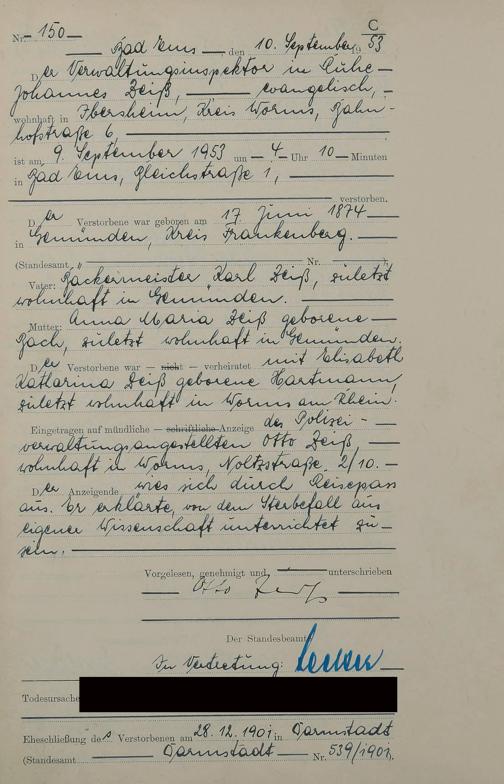 C
Nr. 150
Bad Ems, den 10. September 1953
Der Verwaltungsinspektor in Ruhe
Johannes Zeiß, evangelisch,
wohnhaft in Ibersheim, Kreis Worms, Bahn-
hofstraße 6,
ist am 9. September 1953 um 4 Uhr 10 Minuten
in Bad Ems, Bleichstraße 1,
verstorben.
Der Verstorbene war geboren am 17. Juni 1874
in Gemünden, Kreis Frankenberg.
(Standesamt Nr. )
Vater: Bäckermeister Karl Zeiß, zuletzt
wohnhaft in Gemünden.
Mutter: Anna Maria Zeiß geborene
zuletzt wohnhaft in Gemünden.
Der Verstorbene war — nicht — verheiratet mit Elisabeth
Katharina Zeiß geborene Hartmann,
zuletzt wohnhaft in Worms am Rhein.
Eingetragen auf mündliche — schriftliche Anzeige des Polizei-
verwaltungsangestellten Otto Zeiß,
wohnhaft in Worms, 2/10.
Der Anzeigende wies sich durch Reisepass
aus. Er erklärte, von dem Sterbefall aus
eigener Wissenschaft unterrichtet zu
sein.
Vorgelesen, genehmigt und unterschrieben
Otto Zeiß
Der Standesbeamte
In Vertretung:
Todesursache
Eheschließung des Verstorbenen am 28.12.1901 in Darmstadt
(Standesamt Darmstadt Nr. 539/1901).